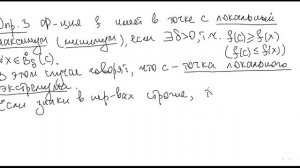 Опр. 3 Ф-ция f имеет в точке c локальный
максимум (минимум), если ∃δ>0, т.ч. f(c)≥f(x)
∀x∈B̊δ(c). (f(c)≤f(x))
В этом случае говорят, что c - точка локального
экстремума.
Если знаки в нер-вах строгие,